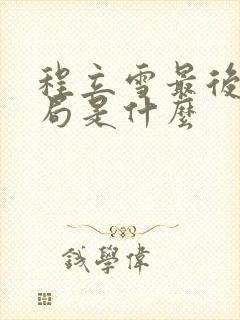 程立雪最後
局是什麼
钱學偉